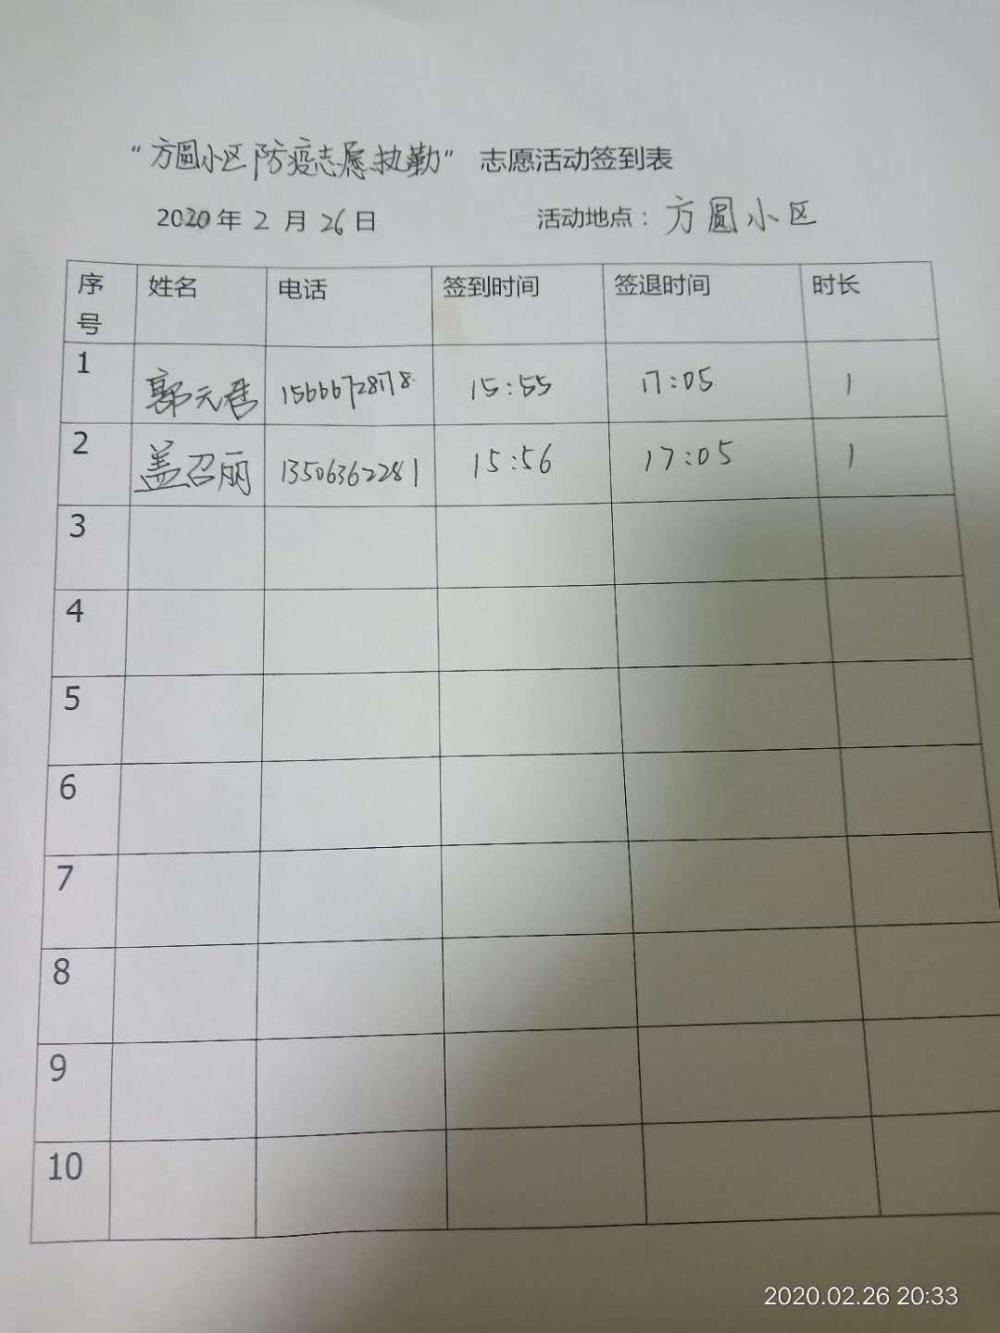 “方圆小区防疫志愿执勤”志愿活动签到表
2020年2月26日 活动地点：方圆小区
序号 姓名 电话 签到时间 签退时间 时长
1 郭元君 15666728178 15:55 17:05 1
2 盖召丽 13506362281 15:56 17:05 1
3
4
5
6
7
8
9
10
2020.02.26 20:33